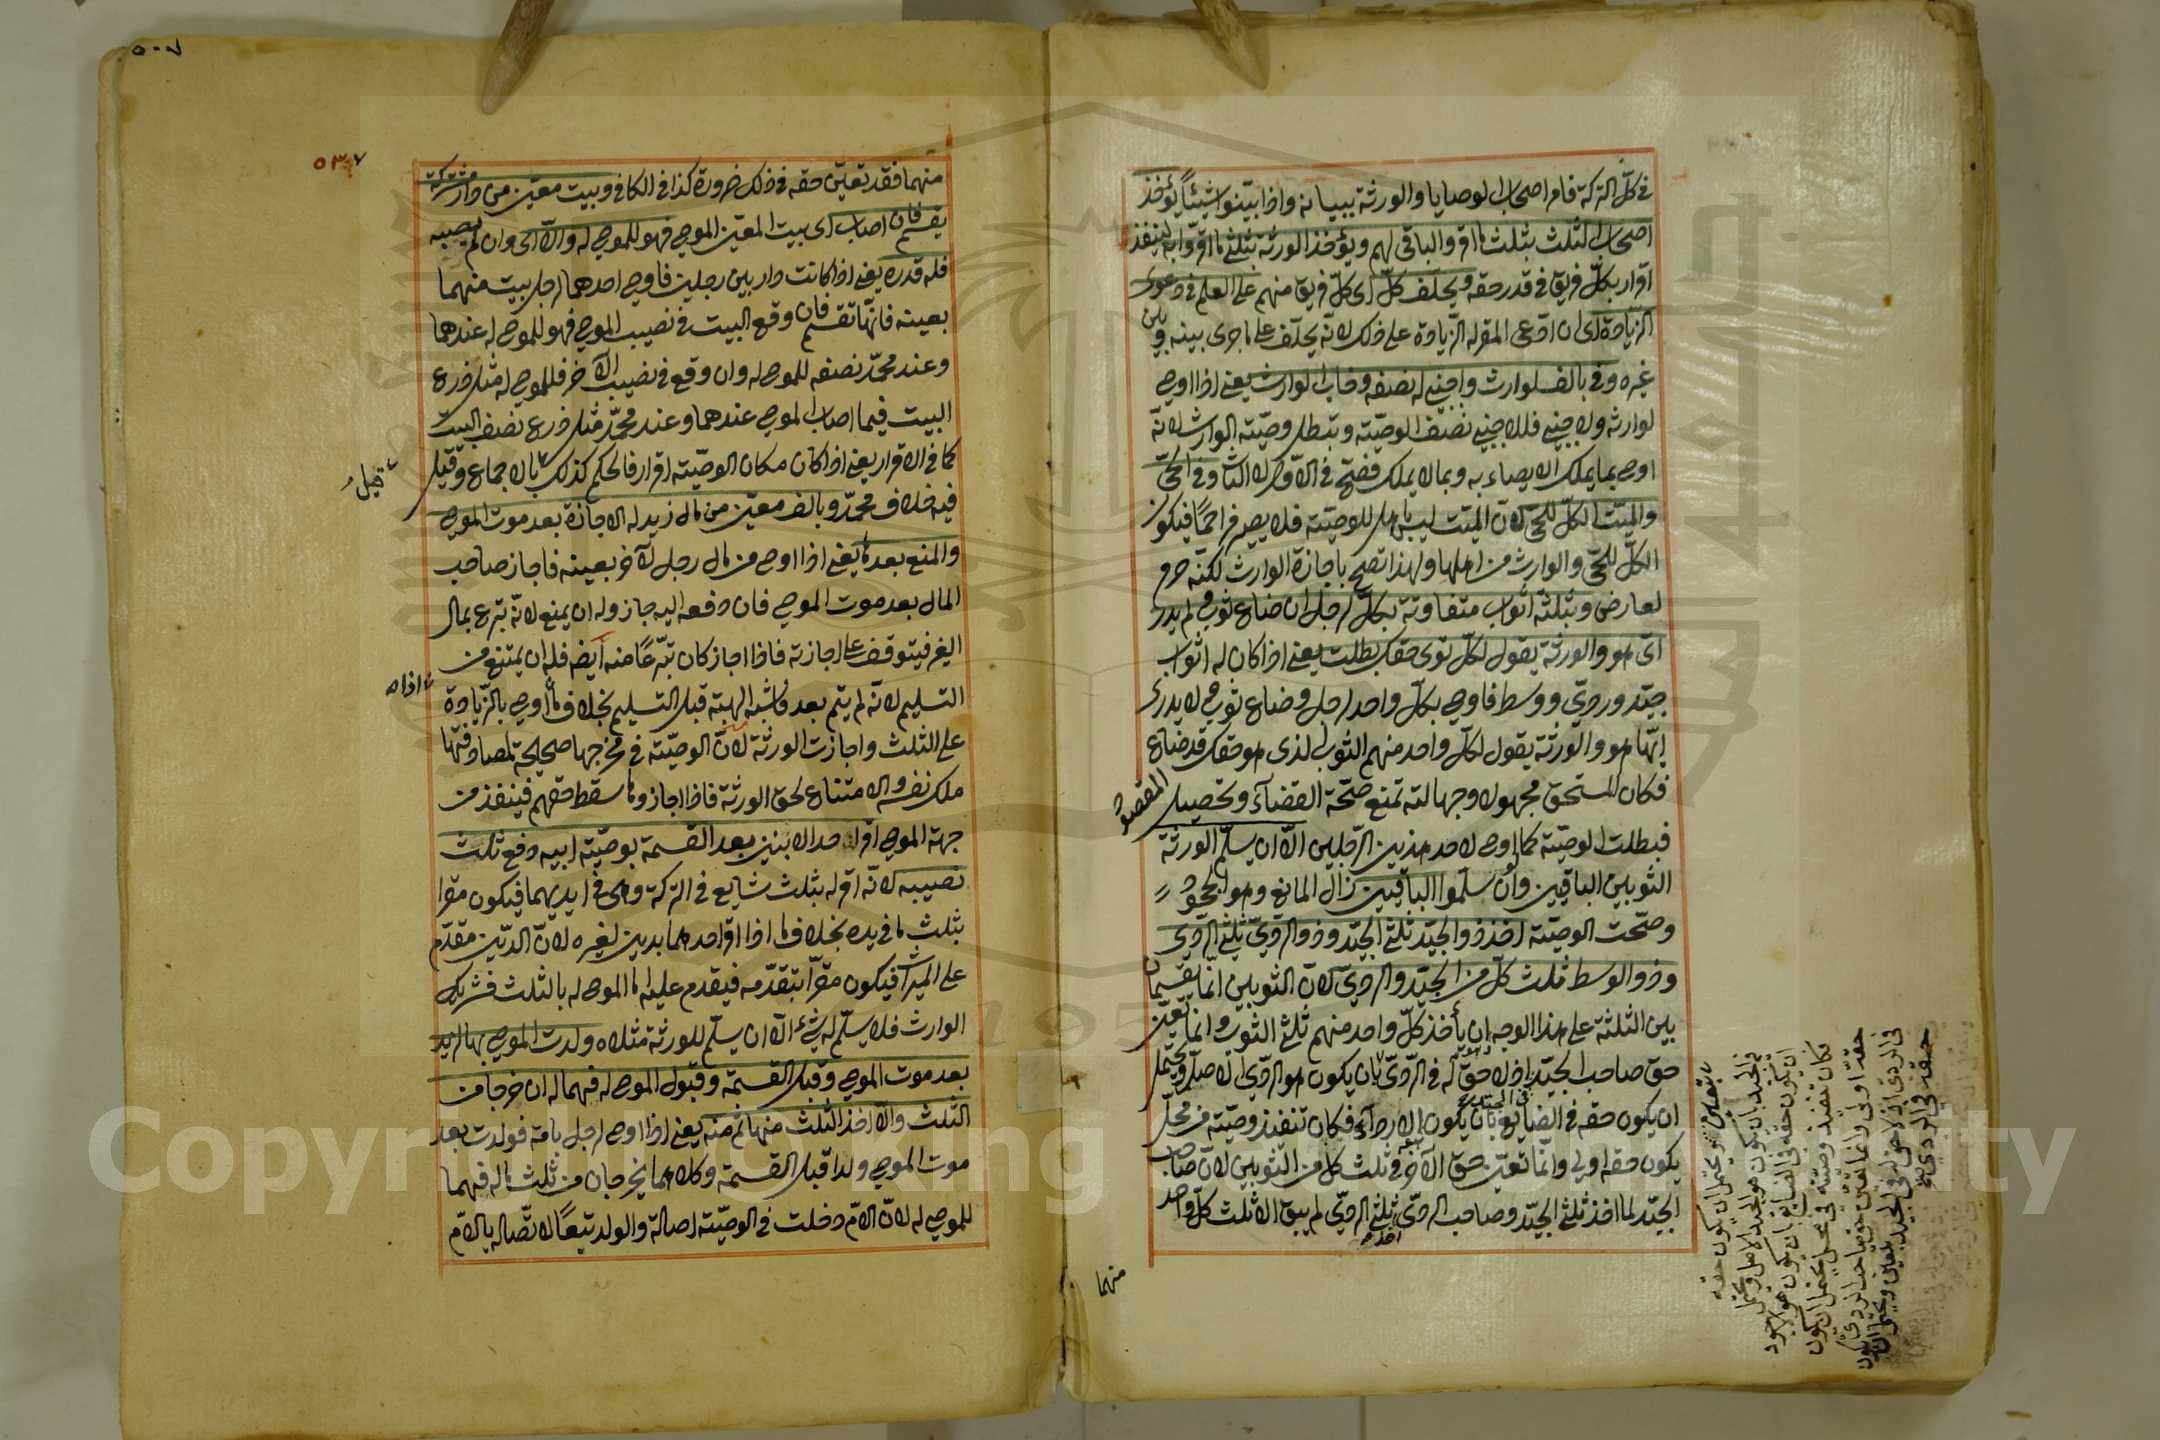 في كلّ التركة فامر اصحاب الوصايا والورثة ببيانه واذا بيّنوا شيئاً يؤخذ
اصحاب الثلث بثلث ما اقر والباقي لهم ويؤخذ الورثة بثلثي ما اقرّوا به لينفذ
اقرار بكلّ فريق في قدر حقه ويحلف كلّ اى كلّ فريق منهم على العلم في دعوى
الزيادة اى ان ادّعى المقر له الزّيادة على ذلك لانّه يحلّف على ما جرى بينه وبين
غيره وفي بالف لوارث واجنبي له نصفه وخاب الوارث يعني اذا اوصى
لوارثه ولاجنبي فللاجنبي نصف الوصيّة وتبطل وصيّته الوارث لانّه
اوصى بما يملك الايصاء به وبما لا يملك فصحّ في الاوّل لا الثاني وفي الحيّ
والميّت الكلّ للحيّ لانّ الميّت ليس باهل للوصيّة فلا يصير مزاحمًا فيكون
الكلّ للحيّ والوارث من اهلها ولهذا تصح باجازة الوارث لكنّه حرم
لعارض وبثلثة اثواب متفاوتة بكلّ لرجل ان ضاع ثوب ولم يدر
اىّ هو والورثة يقول لكلّ توى حقك بطلت يعني اذا كان له اثواب
جيّد وردىّ ووسط فاوصى بكلّ واحد لرجل وضاع ثوب لا يدرى
ايّها هو والورثة يقول لكلّ واحد منهم الثوب الذى هو حقك قد ضاع
فكان المستحق مجهولا وجهالته تمنع صحّة القضاء وتحصيل المقصو
فبطلت الوصيّة كما اوصى لاحد هذين الرّجلين الّا ان يسلّم الورثة
الثوبين الباقيين وان سلّموا الباقيين زال المانع وهو الجحود
وصحّت الوصيّة اخذ ذو الجيّد ثلثى الجيّد وذو الردىّ ثلثى الردىّ
وذو الوسط ثلث كلّ من الجيّد والردىّ لانّ الثوبين انّما يقسمان
بين الثلثة على هذا الوجه ان يأخذ كلّ واحد منهم ثلثى الثوب وانّما تعيّن
حق صاحب الجيّد اذ لا حقّ له في الردىّ بان يكون هو الردىّ الاصلى ويحتمل
ان يكون حقه في الضايع بان يكون الارداء فكان تنفيذ وصيّته في محلّ
يكون حقه اولى وانّما تعيّن حق الآخر في ثلث كل من الثوبين لانّ صاحب
الجيّد لما اخذ ثلثى الجيّد وصاحب الردىّ ثلثى الردىّ لم يبق الا ثلث كلّ واحد
منهما
منهما فقد تعيّن حقه في ذلك ضرورة كذا في الكافي وبيت معيّن من دار مشتركة
يقسم فان اصاب اى بيت المعيّن الموصى فهو للموصى له والّا اى وان لم يصبه
فله قدره يعني اذا كانت دار بين رجلين فاوصى احدهما لرجل ببيت منهما
بعينه فانّها تقسم فان وقع البيت في نصيب الموصى فهو للموصى له عندهما
وعند محمّد نصفه للموصى له وان وقع في نصيب الآخر فللموصى له مثل ذرع
البيت فيما اصاب الموصى عندهما وعند محمّد مثل ذرع نصف البيت
كما في الاقرار يعني اذا كان مكان الوصيّة اقرار فالحكم كذلك بالاجماع وقيل
فيه خلاف محمّد وبالف معيّن من مال زيد له الاجازة بعد موت الموصى
والمنع بعدها يعني اذا اوصى من مال رجل لآخر بعينه فاجاز صاحب
المال بعد موت الموصى فان دفعه اليه جاز وله ان يمنع لانّه تبرّع بمال
الغير فيتوقف على اجازته فاذا اجاز كان تبرّعًا منه ايضا فله ان يمتنع من
التسليم لانّه لم يتم بعد فاشبه الهبة قبل التسليم بخلاف ما اوصى بالزّيادة
على الثلث واجازت الورثة لانّ الوصيّة في مخرجها صحيحة لمصادفتها
ملك نفسه والامتناع لحق الورثة فاذا اجازوها سقط حقهم فينفذ من
جهة الموصى اقر احد الابنين بعد القسمة بوصيّة ابيه دفع ثلث
نصيبه لانّه اقر له بثلث شايع في التركة وهى في ايديهما فيكون مقرا
بثلث ما في يده بخلاف ما اذا اقر احدهما بدين لغيره لانّ الدّين مقدّم
على الميراث فيكون مقرّا بتقدّمه فيقدم عليه اما الموصى له بالثلث فشريك
الوارث فلا يسلّم له شئ الّا ان يسلّم للورثة مثلاه ولدت الموصى بها لزيد
بعد موت الموصى وقبل القسمة وقبول الموصى له فهما له ان خرجا من
الثلث والّا اخذ الثلث منها ثم منه يعني اذا اوصى لرجل بامة فولدت بعد
موت الموصى ولدا قبل القسمة وكلاهما يخرجان من ثلث ماله فهما
للموصى له لانّ الامّ دخلت في الوصيّة اصالة والولد تبعًا لاتّصاله بالامّ
قيل
٥٠٧
Copyright © King University